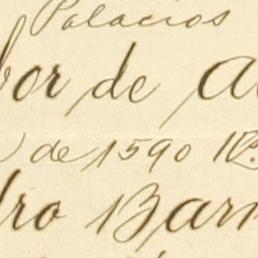 Palacios
bor de A
de 1590 Rs.
dro Barr